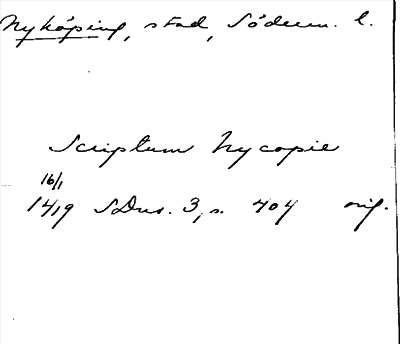 Nyköping, stad, Söderm. l.
Scriptum Nycopie
16/1
1419 SDns. 3, s. 404 orig.